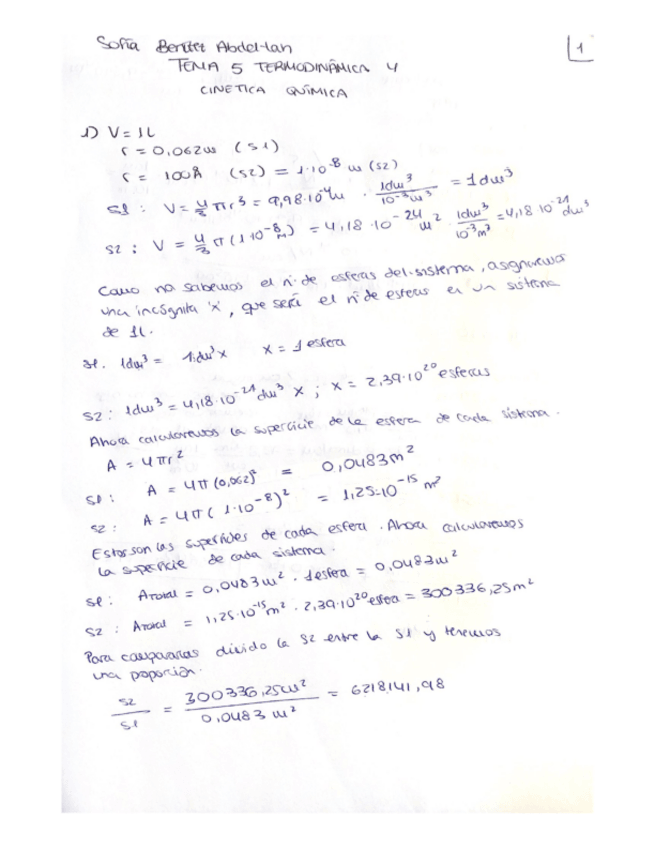 Sofía Benítez Abdel-lan
1
TEMA 5 TERMODINÁMICA Y
CINETICA QUÍMICA
1) V = 1L
r = 0,062m (S1)
r = 100Å (S2) = 1·10^-8 m (S2)
S1 : V = 4/3 πr^3 = 9,98·10^-4 m · 1dm^3/10^-3 m^3 = 1dm^3
S2 : V = 4/3 π (1·10^-8 m) = 4,18·10^-24 m^2 · 1dm^3/10^-3 m^3 = 4,18 10^-21 dm^3
Como no sabemos el nº de esferas del sistema, asignaremos
una incógnita 'x', que será el nº de esferas en un sistema
de 1L.
S1. 1dm^3 = 1dm^3 x x = 1 esfera
S2: 1dm^3 = 4,18·10^-21 dm^3 x ; x = 2,39·10^20 esferas
Ahora calcularemos la superficie de la esfera de cada sistema.
A = 4πr^2
S1 : A = 4π (0,062)^2 = 0,0483m^2
S2: A = 4π ( 1·10^-8)^2 = 1,25·10^-15 m^2
Estas son las superficies de cada esfera. Ahora calcularemos
la superficie de cada sistema.
S1: Atotal = 0,0483m^2 · 1esfera = 0,0483m^2
S2 : Atotal = 1,25·10^-15 m^2 · 2,39·10^20 esfera = 300336,25m^2
Para compararlas divido la S2 entre la S1 y tenemos
una proporción.
S2/S1 = 300336,25m^2/0,0483 m^2 = 6218141,98